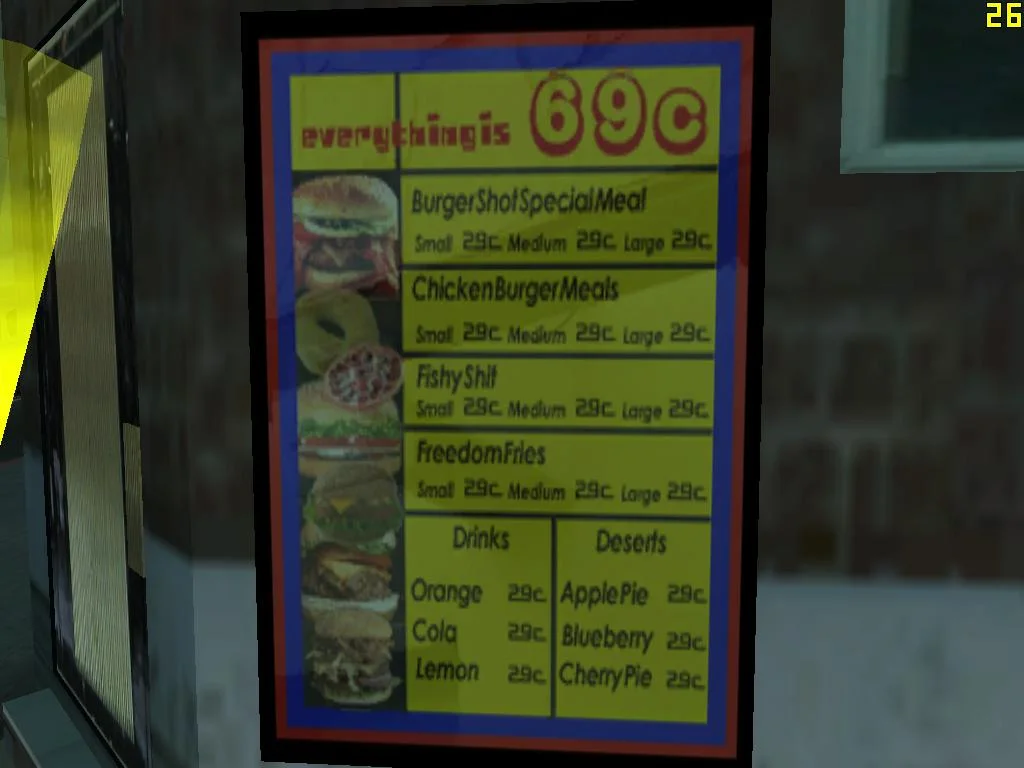 26
everything is 69c
BurgerShotSpecialMeal
Small 29c Medium 29c Large 29c
ChickenBurgerMeals
Small 29c Medium 29c Large 29c
FishyShit
Small 29c Medium 29c Large 29c
FreedomFries
Small 29c Medium 29c Large 29c
Drinks
Orange 29c
Cola 29c
Lemon 29c
Deserts
ApplePie 29c
Blueberry 29c
CherryPie 29c